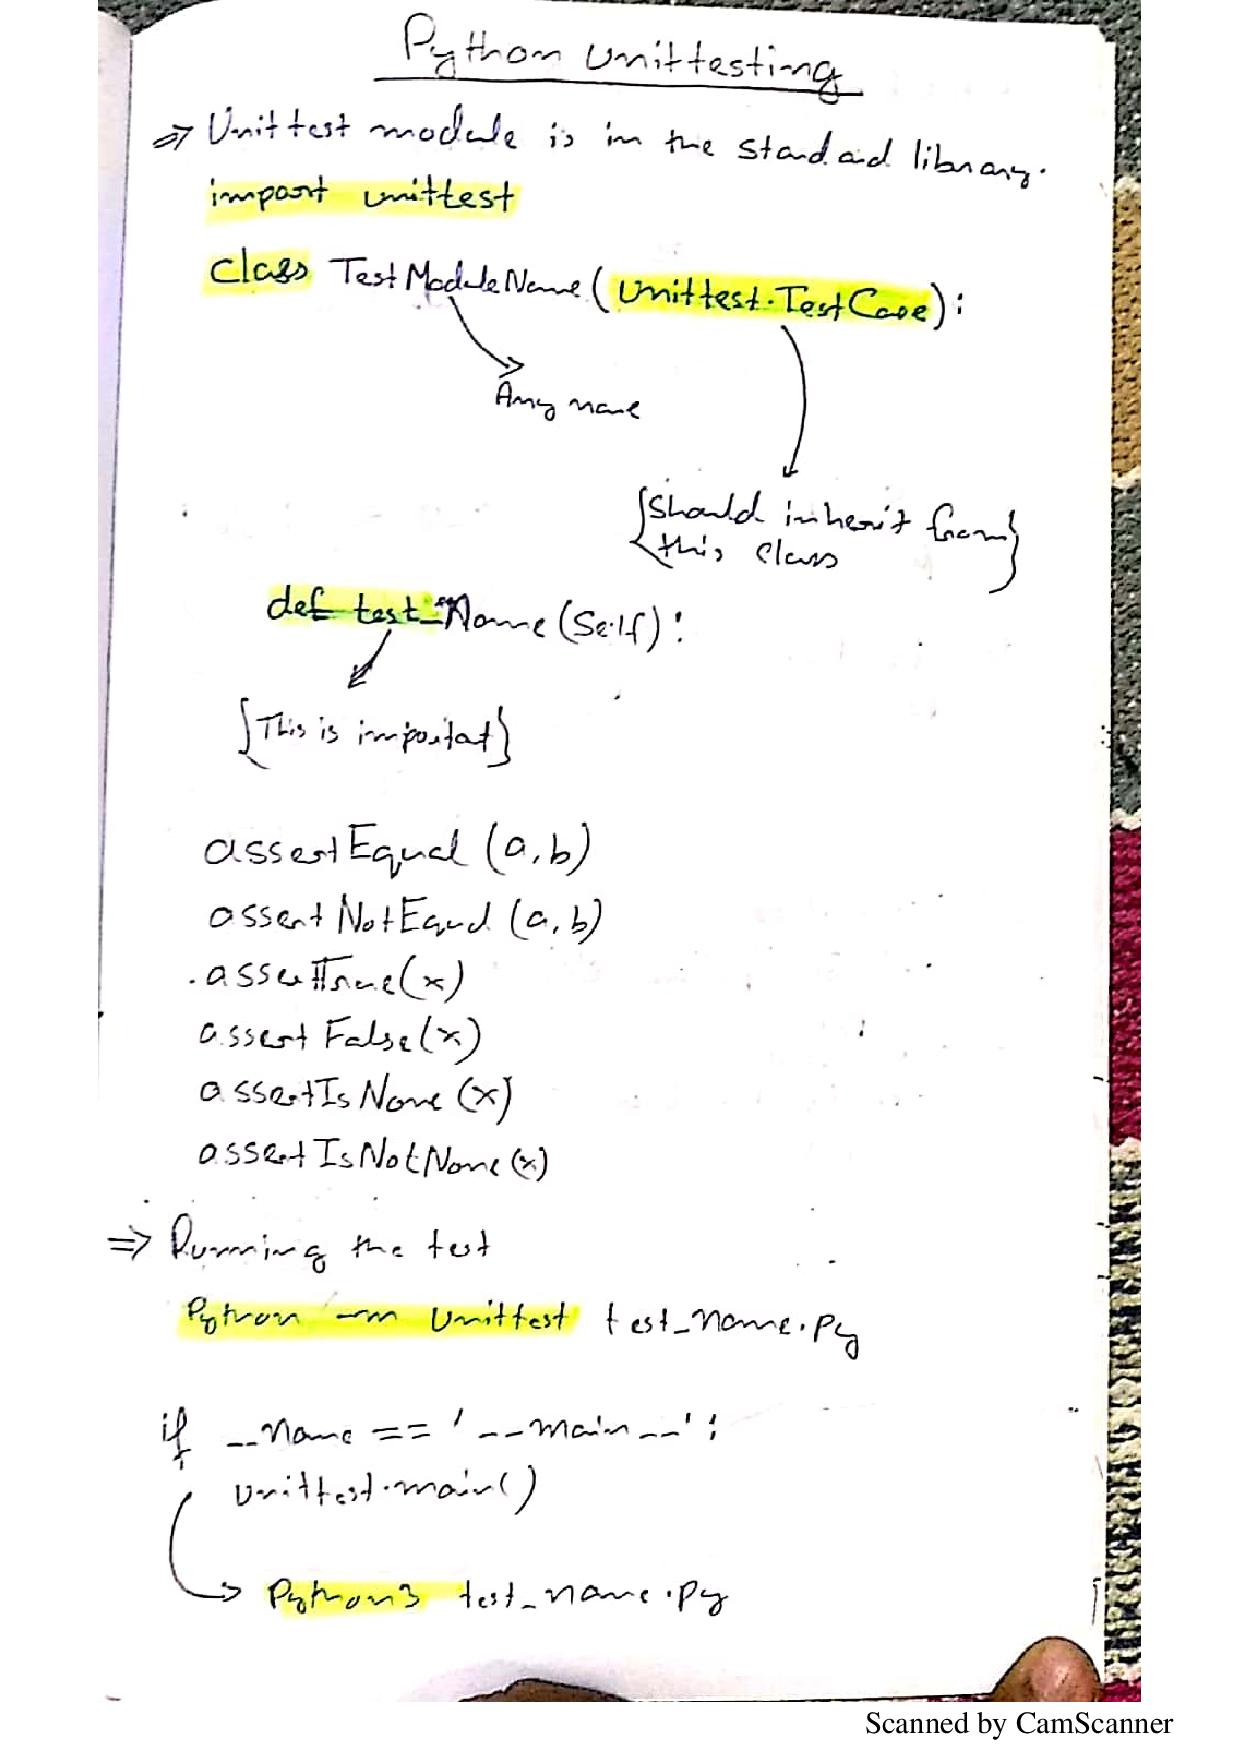 Python Unittesting
⇒ Unittest module is in the standad library.
import unittest
class TestModuleName(Unittest.TestCase):
Any name
{Should inherit from
this class}
def test_Name(Self):
{This is importat}
assertEqual (a,b)
assertNotEqual (a,b)
.assertTrue(x)
assertFalse(x)
assertIsNone (x)
assertIsNotNone(x)
⇒ Running the test
Python -m Unittest test_name.py
if __Name == '__main__':
Unittest.main()
Python3 test_name.py
Scanned by CamScanner